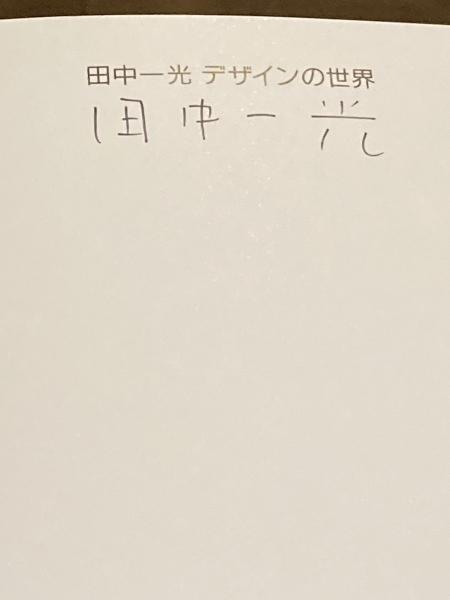 田中一光 デザインの世界
田中一光